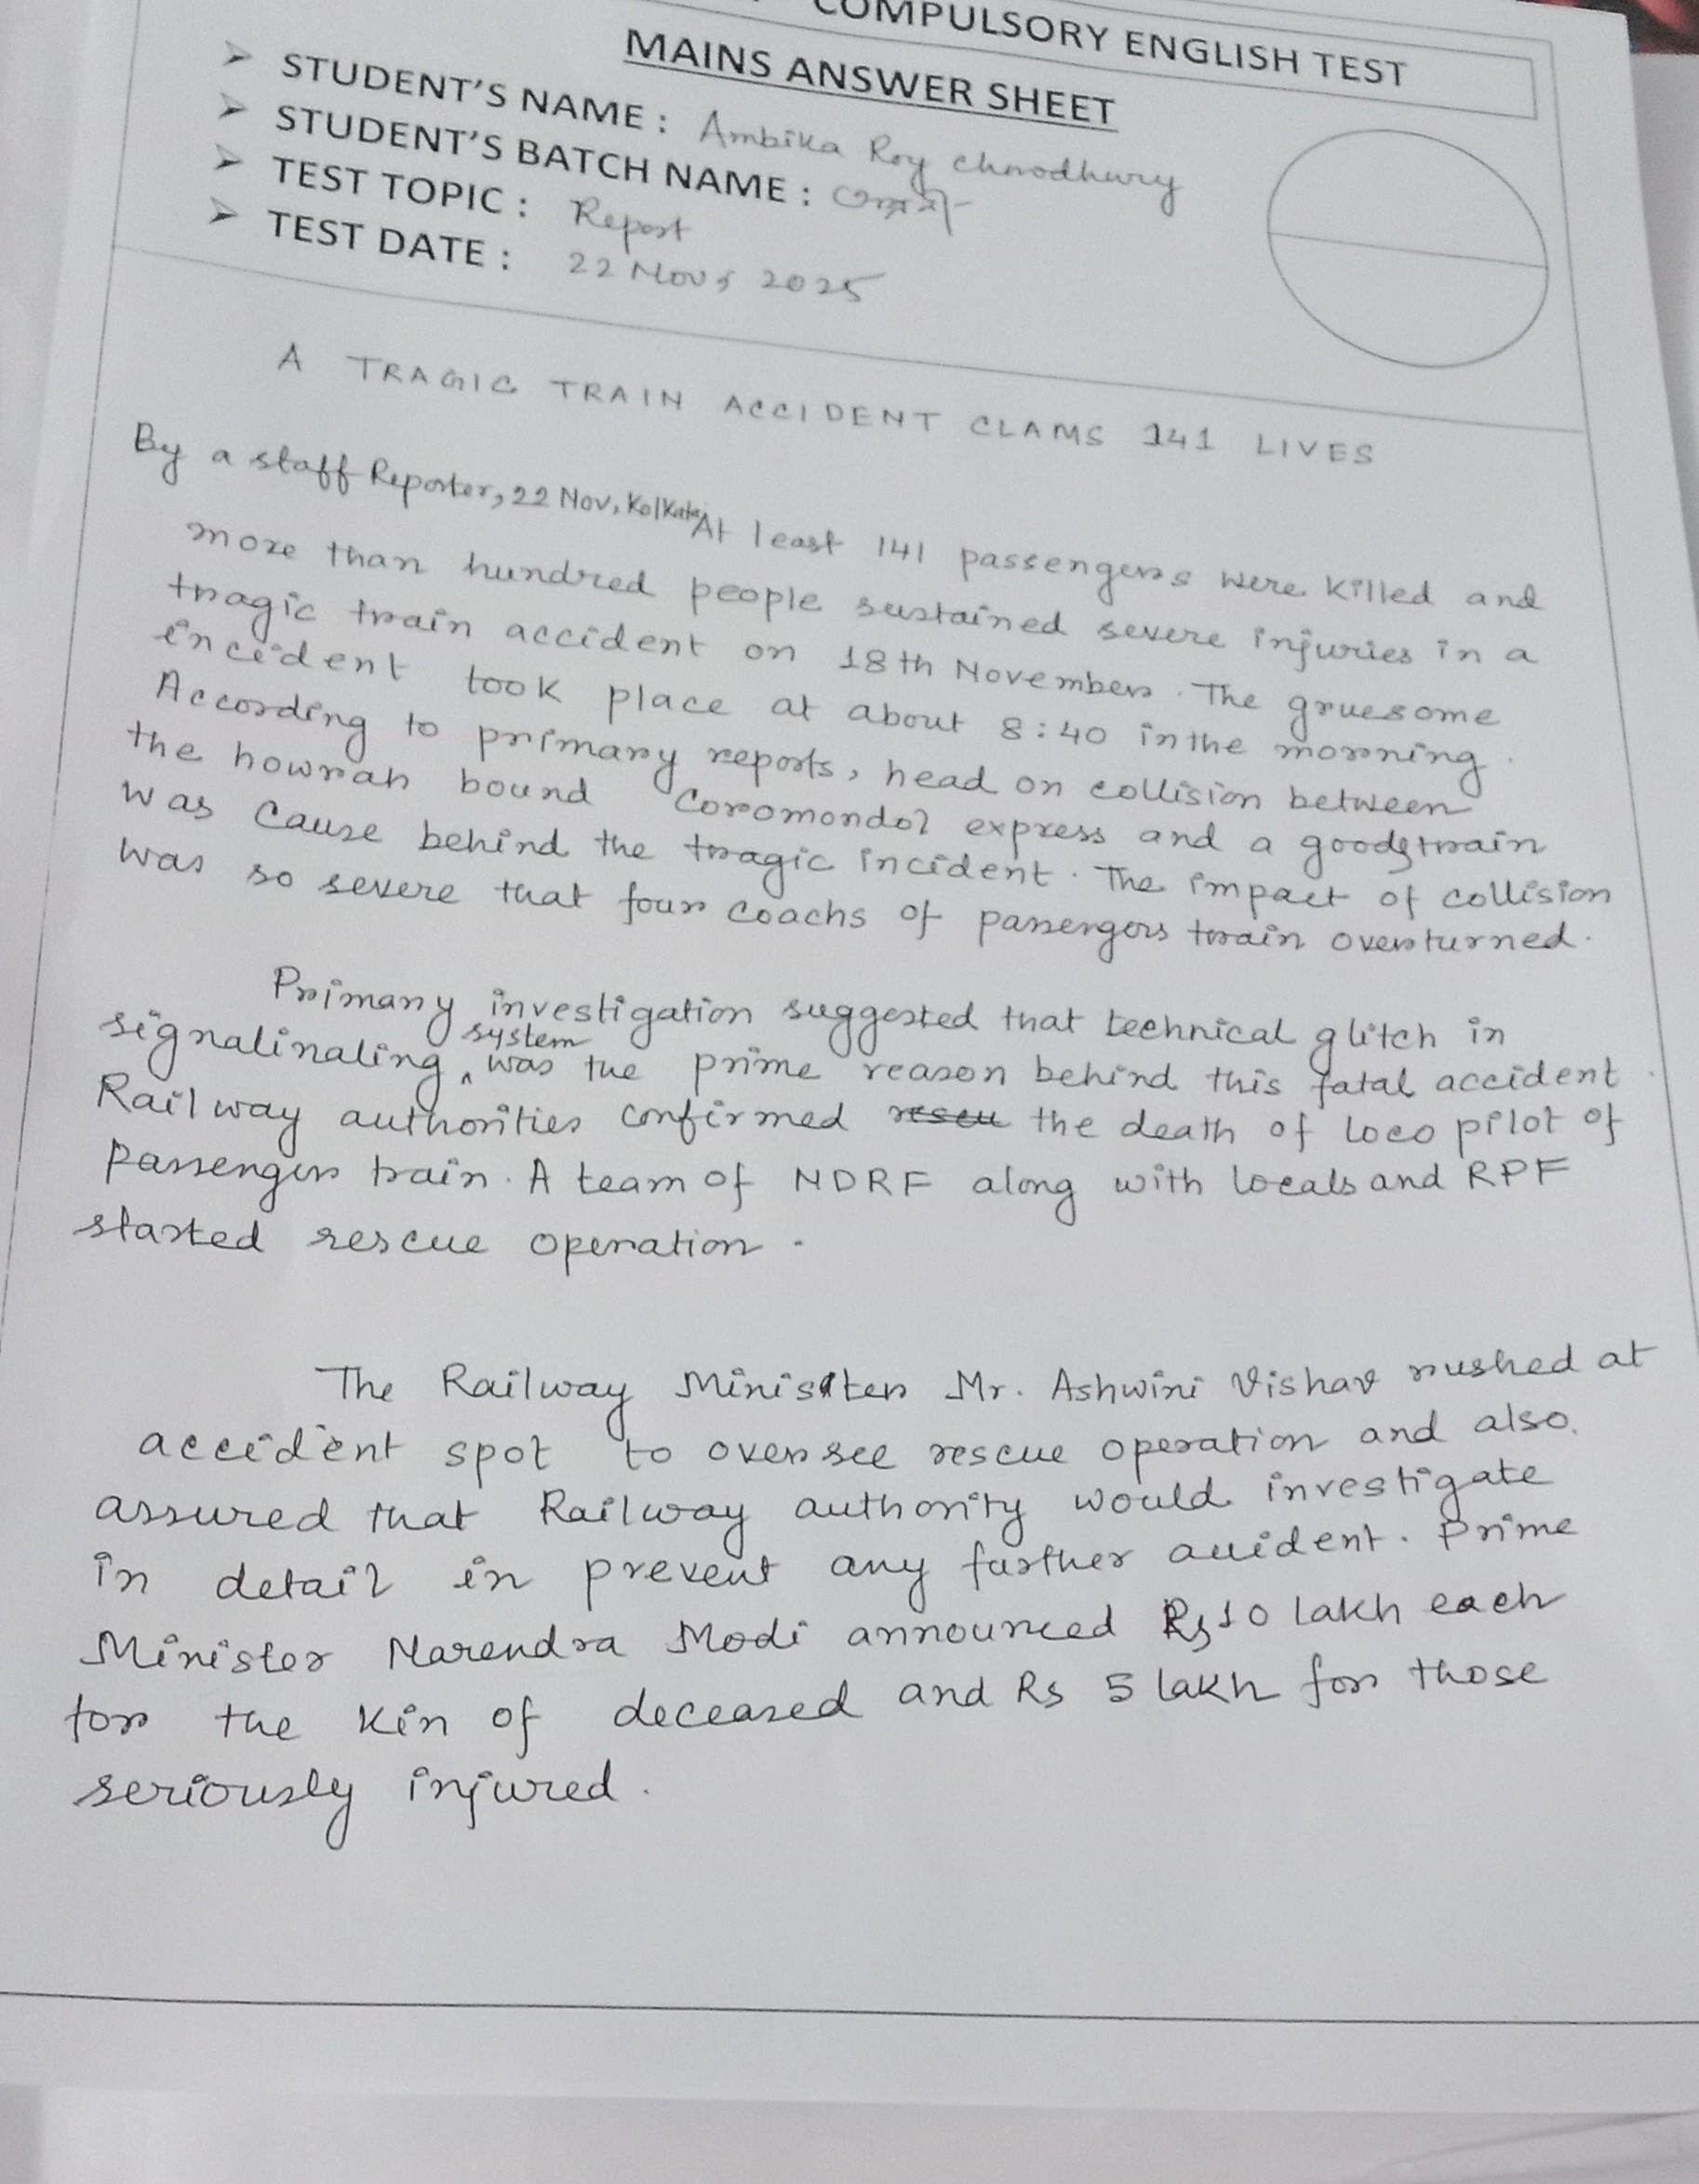 COMPULSORY ENGLISH TEST
MAINS ANSWER SHEET
➢ STUDENT'S NAME : Ambika Roy Chowdhury
➢ STUDENT'S BATCH NAME :
➢ TEST TOPIC : Report
➢ TEST DATE : 22 Nov, 2025
A TRAGIC TRAIN ACCIDENT CLAMS 141 LIVES
By a staff Reporter, 22 Nov, Kolkata, At least 141 passengers were killed and
more than hundred people sustained severe injuries in a
tragic train accident on 18th November. The gruesome
incident took place at about 8:40 in the morning.
According to primary reports, head on collision between
the howrah bound Coromondol express and a goods train
was cause behind the tragic incident. The impact of collision
was so severe that four coachs of passengers train overturned.
Primary investigation suggested that technical glitch in
signalinaling system was the prime reason behind this fatal accident.
Railway authorities confirmed rescu the death of loco pilot of
passenger train. A team of NDRF along with locals and RPF
started rescue operation.
The Railway Minister Mr. Ashwini Vishav rushed at
accident spot to oversee rescue operation and also
assured that Railway authority would investigate
in detail in prevent any further accident. Prime
Minister Narendra Modi announced Rs 10 lakh each
for the kin of deceased and Rs 5 lakh for those
seriously injured.